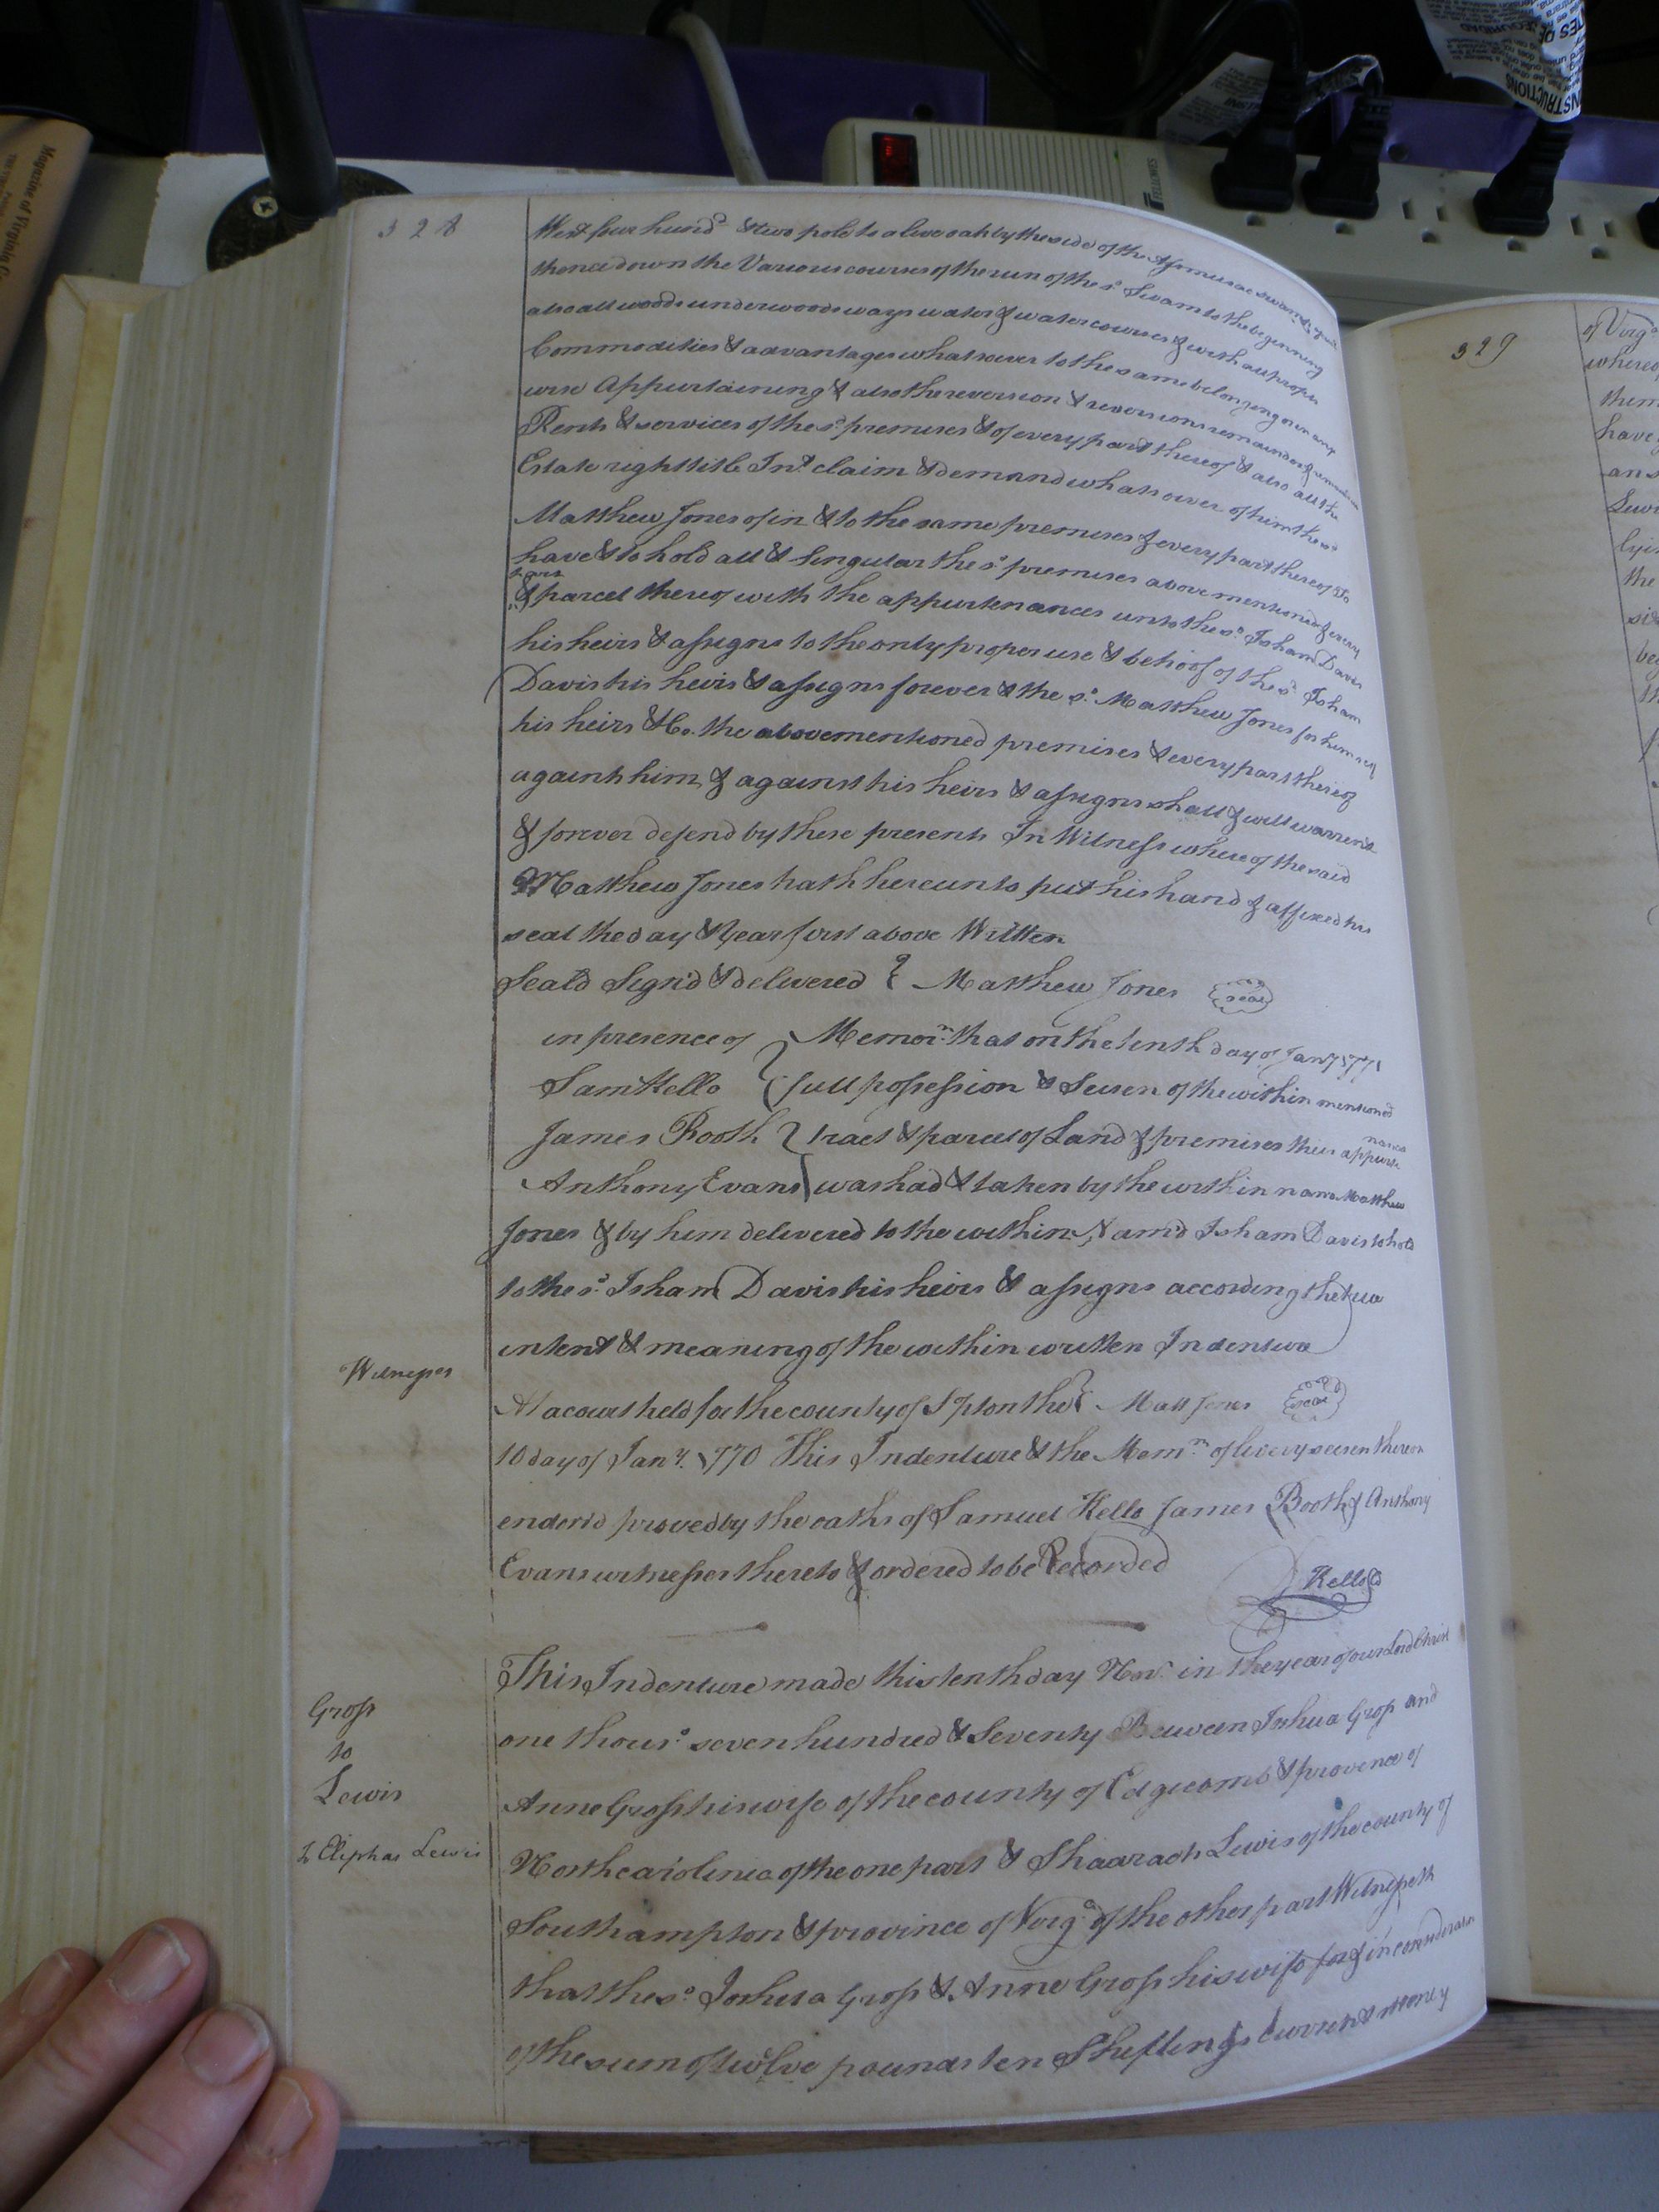 328
West four hund.d & two pole to a live oak by the side of the swamp
thence down the Various courses of the run of the s.d Swam to the beginning
also all woods underwoods ways water & water courses & with all propr
Commodities & advantages whatsoever to the same belonging or in any
wise Appurtaining & also the reversion & reversions remainder &
Rents & services of the s.d premises & of every part thereof & also all the
Estate right title Int.t claim & demand whatsoever of him the s.d
Matthew Jones of in & to the same premises & every part thereof To
have & to hold all & Singular the s.d premises above mentioned & every
part
& parcel thereof with the appurtenances unto the s.d Isham Davis
his heirs & assigns to the only proper use & behoof of the s.d Isham
Davis his heirs & assigns forever & the s.d Matthew Jones for himself
his heirs &Co. the abovementioned premises & every part thereof
against him & against his heirs & assigns shall & will warrent
& forever defend by these presents In Witness whereof the said
Matthew Jones hath hereunto put his hand & affixed his
seal the day & year first above Written
Seal'd Sign'd & delivered Matthew Jones seal
in presence of Memor.m that on the tenth day of Jan.y 1771
Sam Kello full possession & Seisen of the within mentioned
James Booth tract & parcel of Land & premises their appurte
nances
Anthony Evans was had & taken by the within name Matthew
Jones & by him delivered to the within Nam'd Isham Davis to hold
to the s.d Isham Davis his heirs & assigns according the true
intent & meaning of the within written Indenture
Witnesses
At a court held for the county of S'pton the Matt Jones seal
10 day of Jan.y 1770 This Indenture & the Mem.m of livery seisen thereon
endors'd proved by the oaths of Samuel Kello James Booth & Anthony
Evans witnesses thereto & ordered to be Recorded
Kello
This Indenture made this tenth day Nov.r in the year of our Lord Christ
Gross
to
Lewis
one thous.d seven hundred & Seventy Beween Joshua Gross and
Anne Gross his wife of the county of Edgecomb & provence of
to Eliphas Lewis
Northcarolinea of the one part & Shaarach Lewis of the county of
Southampton & province of Virg.a of the other part Witnesseth
that the s.d Joshua Gross & Anne Gross his wife for & in consideration
of the sum of twelve pounds ten Shillings Current money
329
of Virg.a
whereof
them
have
the
FELLOWES
INSTRUCTIONS
Magazine of Virginia